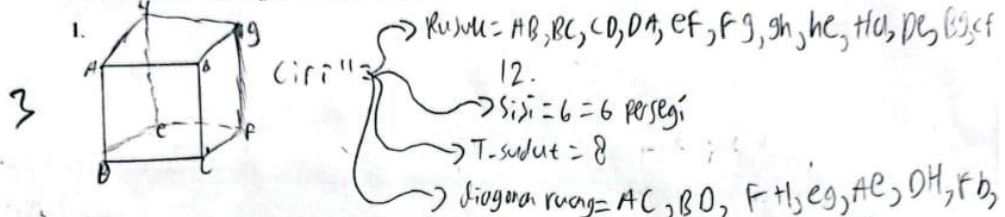 1.
3
H
g
A
B
e
F
D
C
Ciri"=
→ Rusuk= AB, BC, CD, DA, eF, Fg, gh, he, Ha, De, Bg, cf
12.
→ Sisi = 6 = 6 persegi
→ T. sudut = 8
→ diagonal ruang= AC, BD, FH, eg, Ae, DH, Fb,